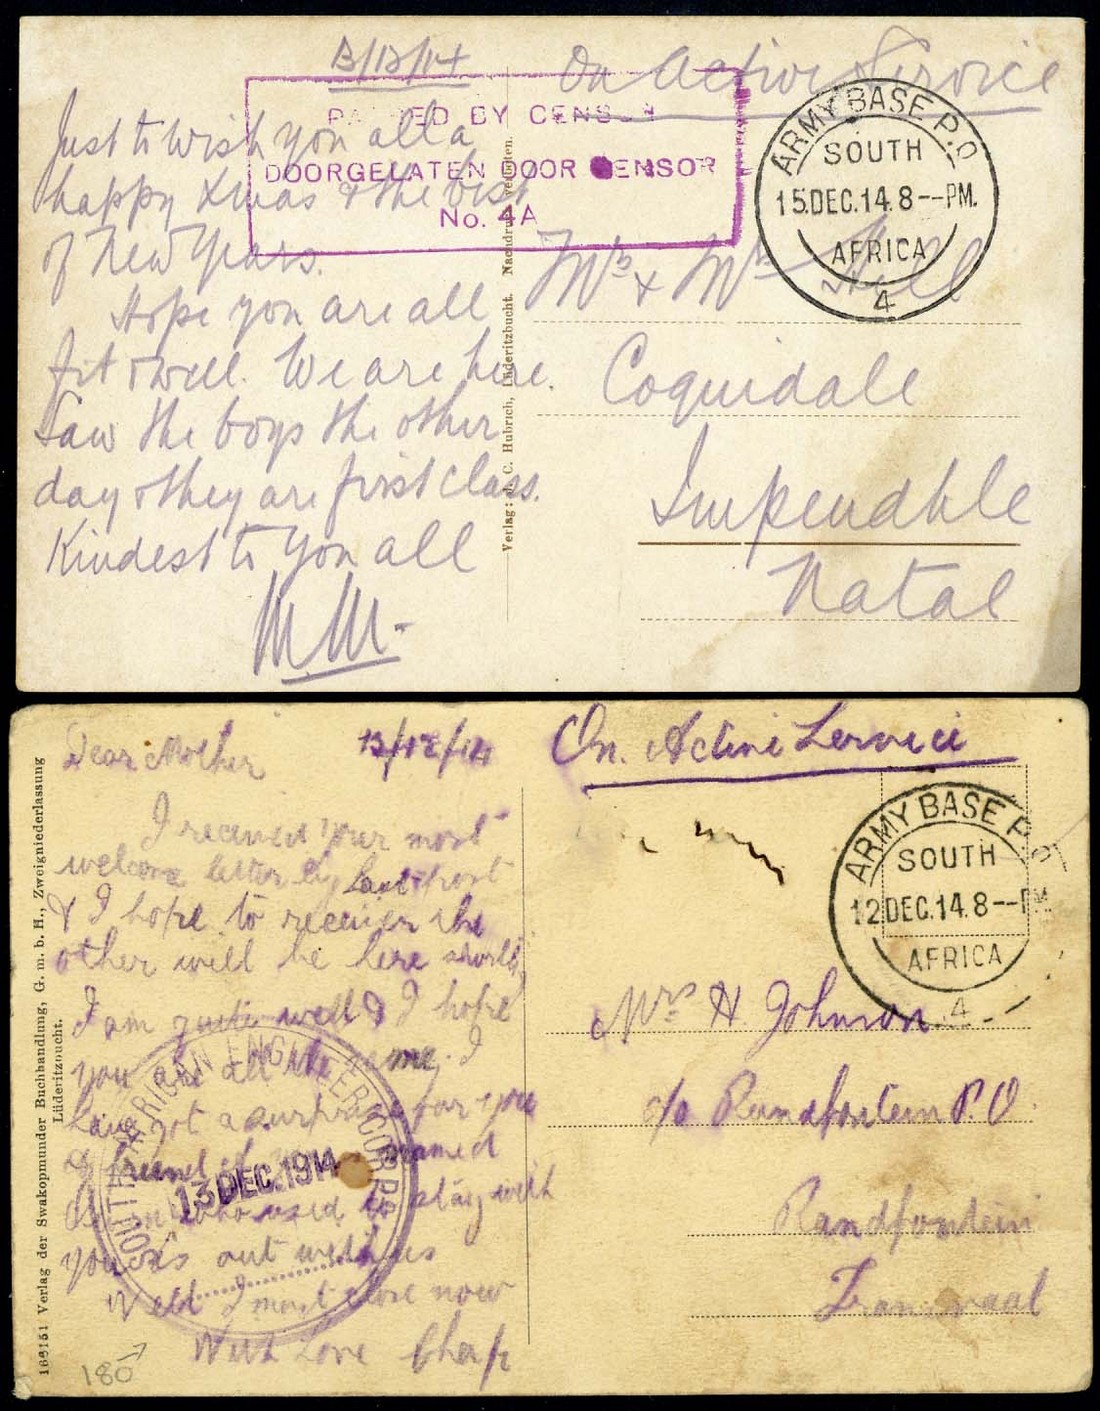 13/12/14
On Active Service
PASSED BY CENSOR
DOORGELATEN DOOR CENSOR
No. 4A
ARMY BASE P.O.
SOUTH
15.DEC.14.8--PM.
AFRICA
4
Just to wish you all a
happy Xmas & the best
of New Years.
Hope you are all
fit & well. We are here.
Saw the boys the other
day & they are first class.
Kindest to you all
M.M.
Verlag: J. C. Hubrich, Lüderitzbucht. Nachdruck verboten.
Mr & Mrs
Coquidale
Impendhle
Natal
Dear Mother
13/12/14
On Active Service
ARMY BASE P.O.
SOUTH
12DEC.14.8--PM.
AFRICA
4
I received your most
welcome letter by last post
& I hope to receive the
other will be here shortly
I am quite well & I hope
you are all the same. I
have got a surprise for you
a friend of named
who used to stay with
you is out with us
Well I must close now
With Love Chap
SOUTH AFRICAN ENGINEER CORPS
13 DEC. 1914
Mrs H. Johnson
c/o Randfontein P.O.
Randfontein
Transvaal
166151 Verlag der Swakopmunder Buchhandlung, G. m. b. H., Zweigniederlassung
Lüderitzbucht.
180